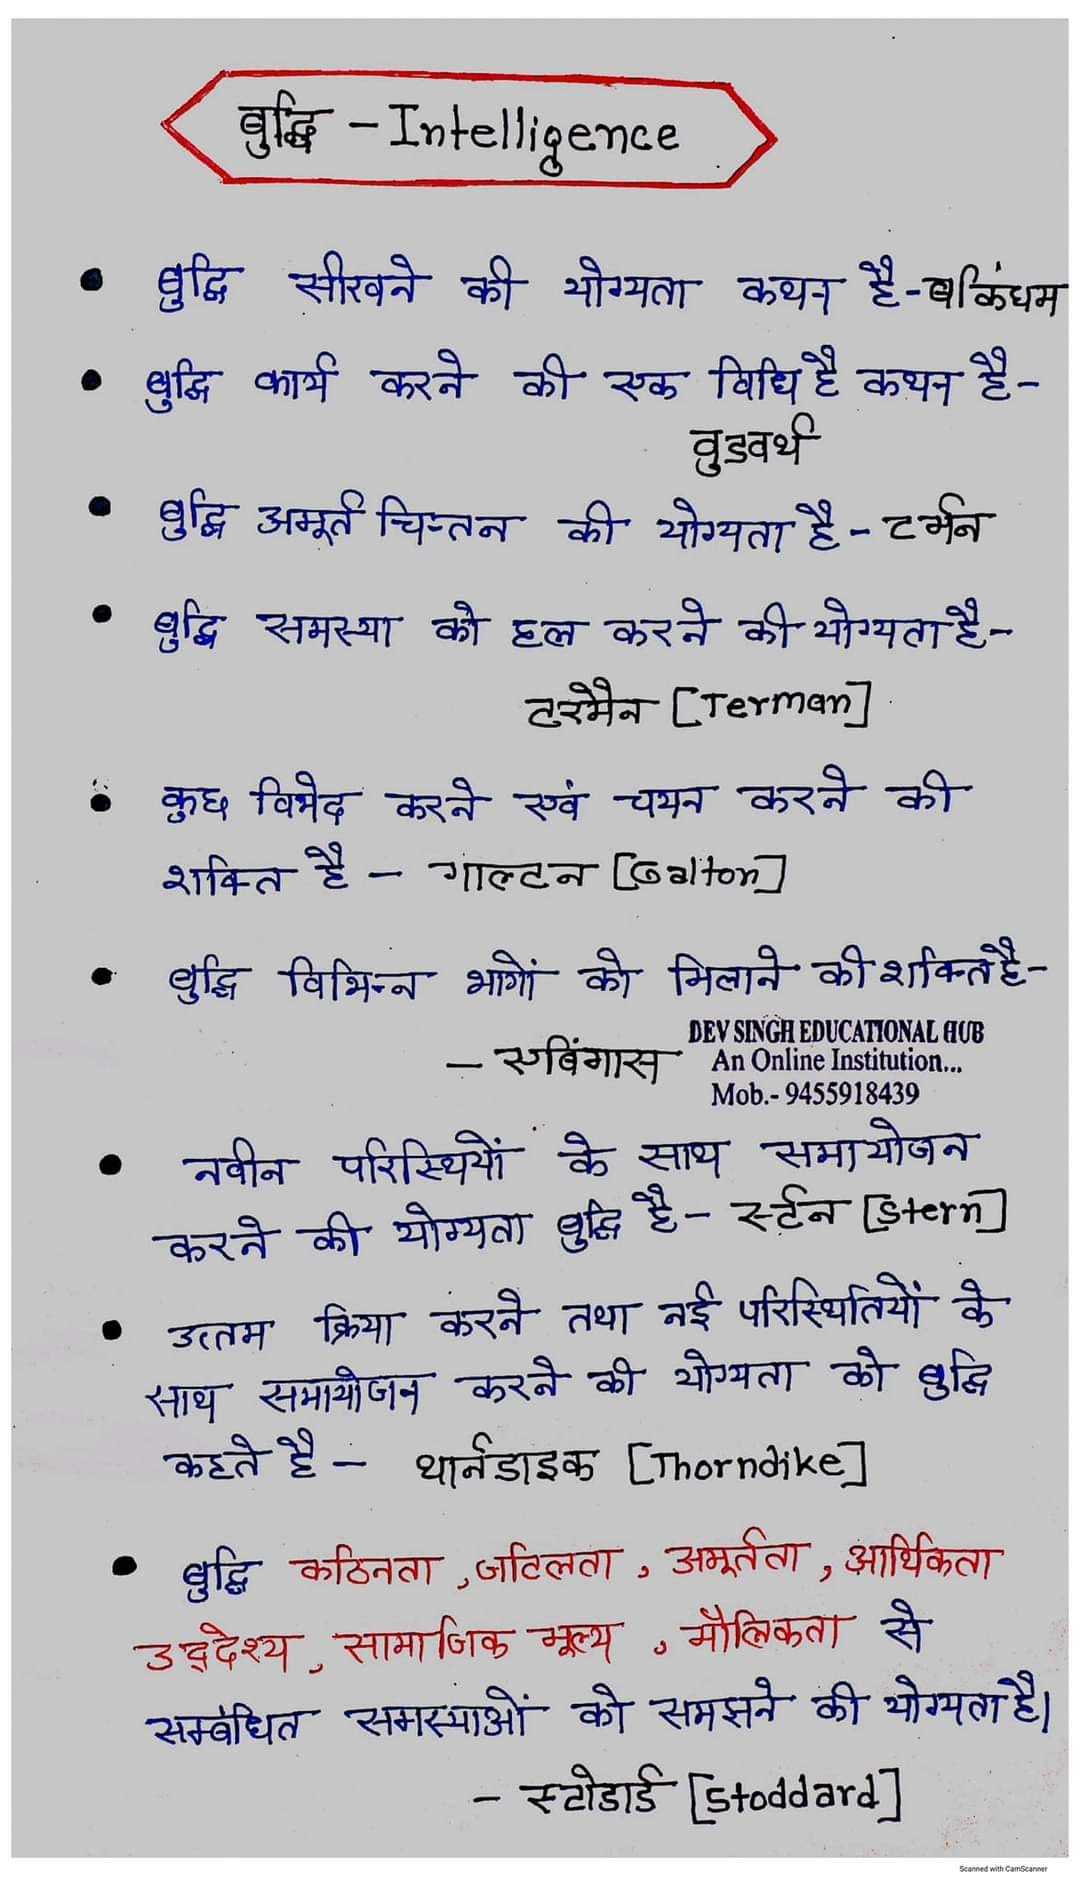 बुद्धि - Intelligence
• बुद्धि सीखने की योग्यता कथन है - बकिंघम
• बुद्धि कार्य करने की एक विधि है कथन है -
वुडवर्थ
• बुद्धि अमूर्त चिन्तन की योग्यता है - टर्मन
• बुद्धि समस्या को हल करने की योग्यता है -
टरमैन [Terman]
• कुछ विभेद करने एवं चयन करने की
शक्ति है - गाल्टन [Galton]
• बुद्धि विभिन्न भागों को मिलाने की शक्ति है -
- एबिंगास
DEV SINGH EDUCATIONAL HUB
An Online Institution...
Mob.- 9455918439
• नवीन परिस्थियों के साथ समायोजन
करने की योग्यता बुद्धि है - स्टर्न [Stern]
• उत्तम क्रिया करने तथा नई परिस्थितियों के
साथ समायोजन करने की योग्यता को बुद्धि
कहते है - थार्नडाइक [Thorndike]
• बुद्धि कठिनता, जटिलता, अमूर्तता, आर्थिकता
उद्देश्य, सामाजिक मूल्य, मौलिकता से
सम्बंधित समस्याओं को समझने की योग्यता है।
- स्टोडार्ड [Stoddard]
Scanned with CamScanner